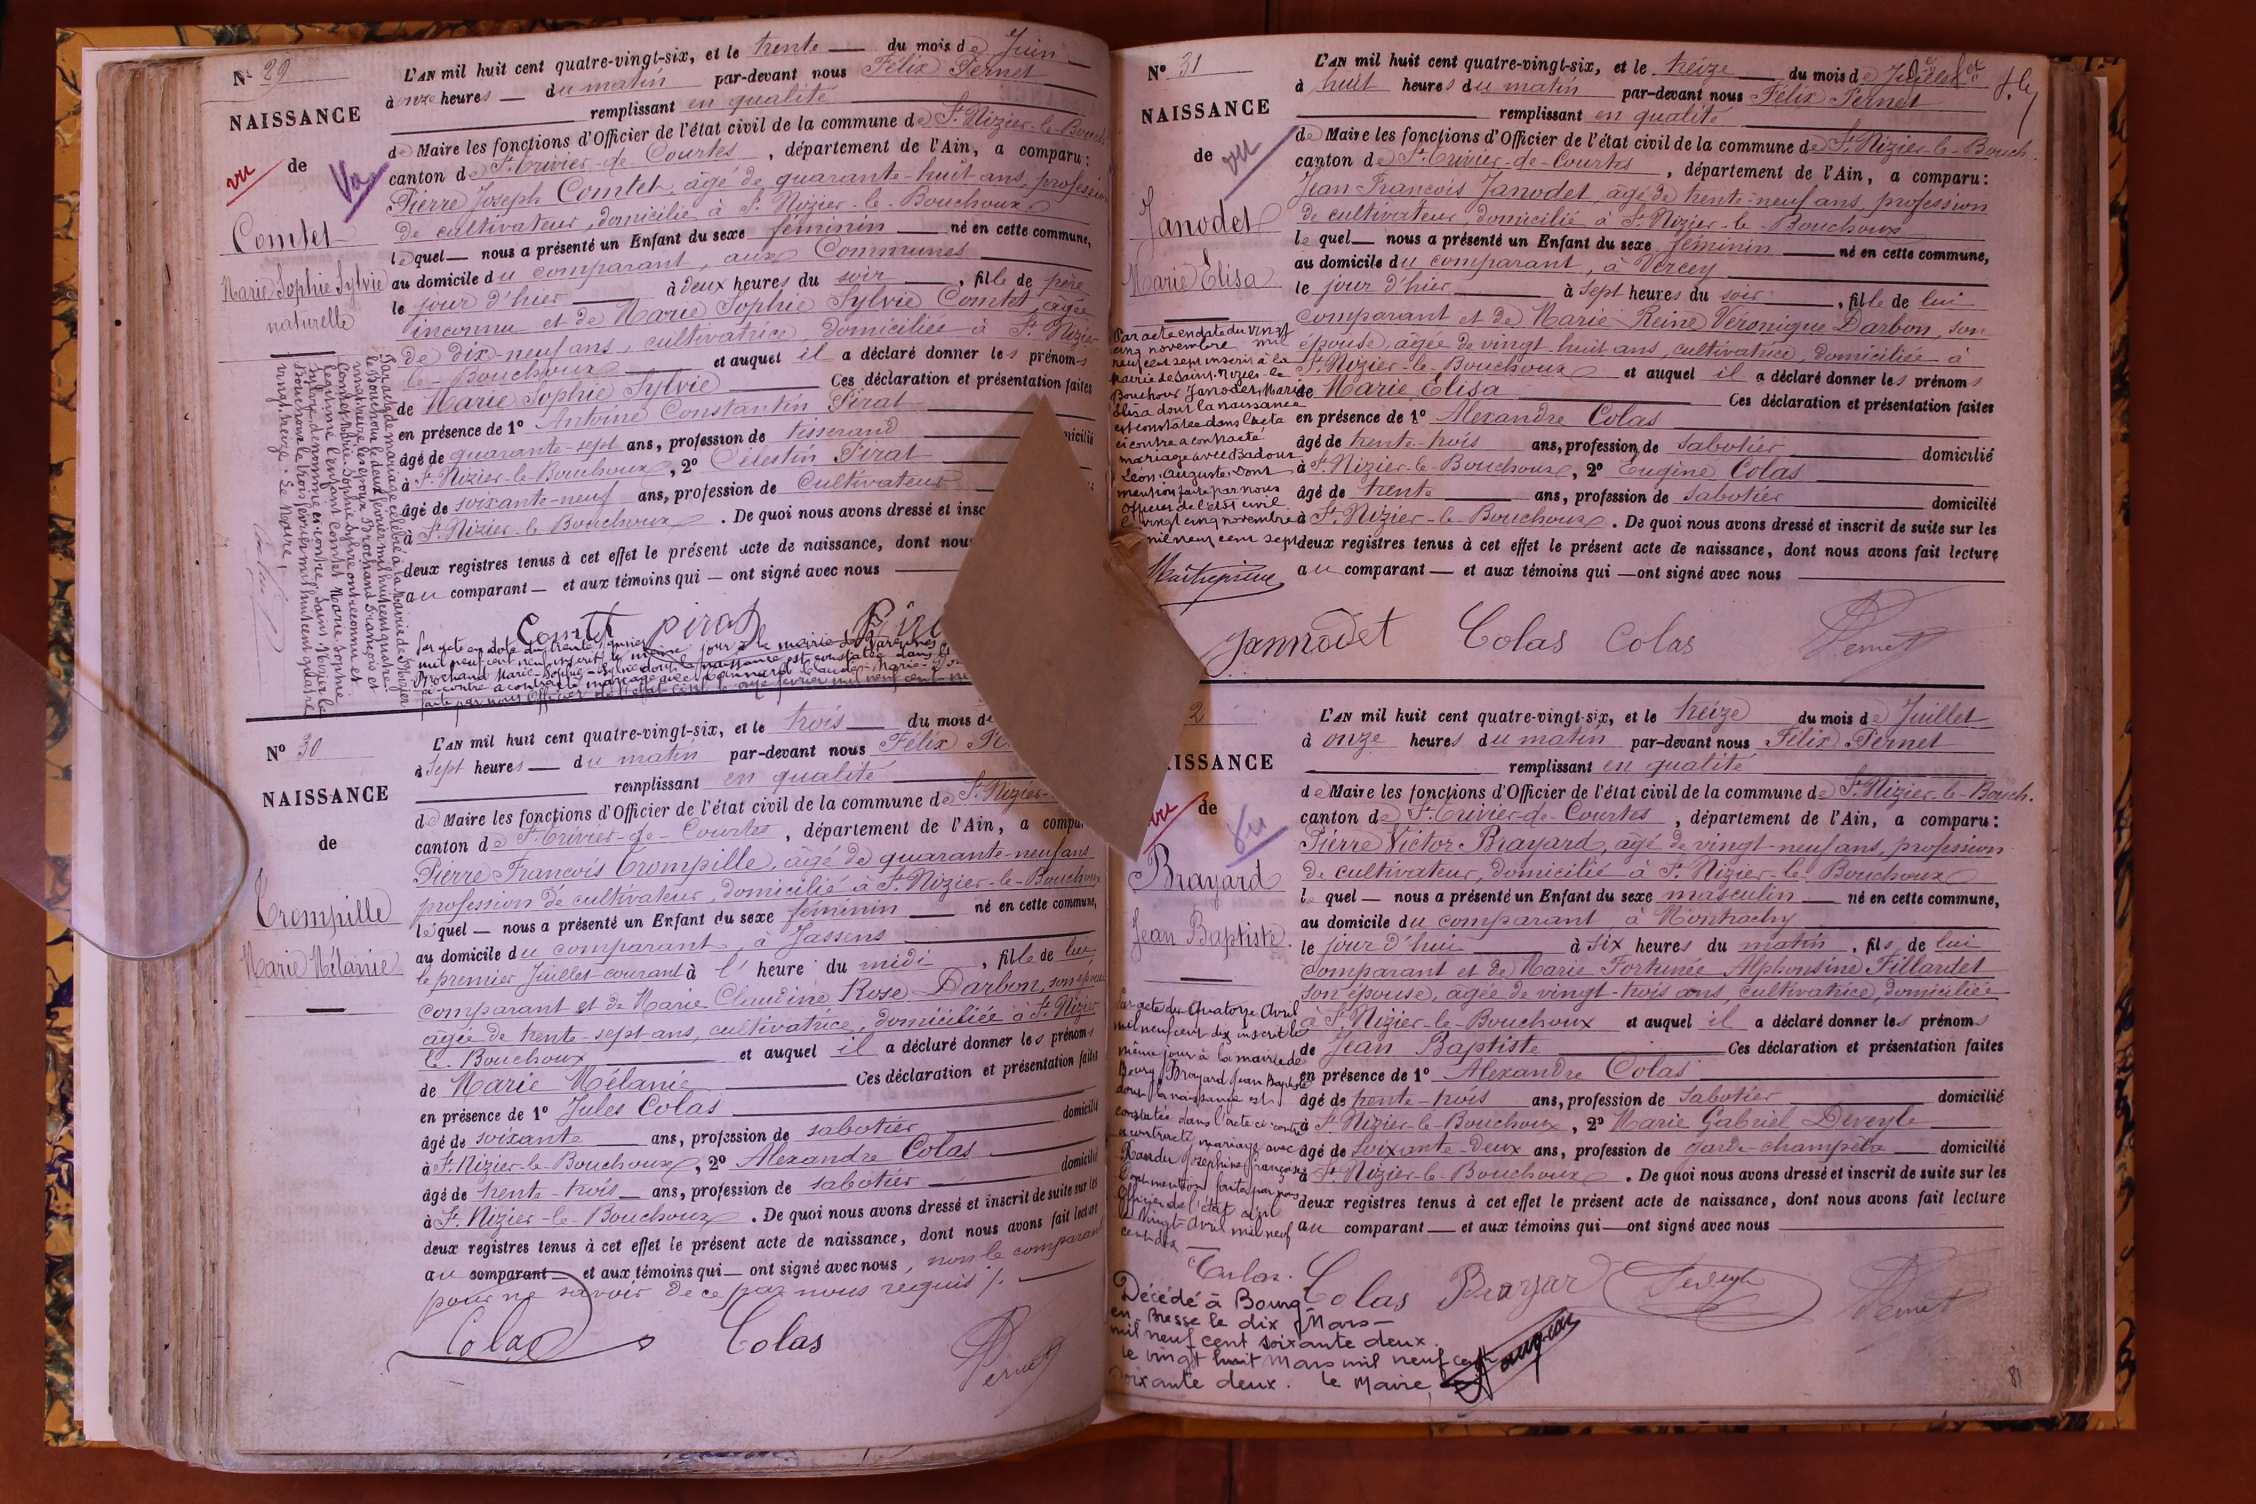 Nº 29
NAISSANCE
de
vu
Vu
Comtet
Marie Sophie Sylvie
naturelle
L'AN mil huit cent quatre-vingt-six, et le trente du mois de Juin
à onze heures du matin par-devant nous Félix Pernet
remplissant en qualité
de Maire les fonctions d'Officier de l'état civil de la commune de St Nizier-le-Bouch
canton de St Trivier-de-Courtes, département de l'Ain, a comparu:
Pierre Joseph Comtet, âgé de quarante-huit ans, profession
de cultivateur, domicilié à St Nizier-le-Bouchoux
lequel nous a présenté un Enfant du sexe féminin né en cette commune,
au domicile du comparant, aux Communes
le jour d'hier à deux heures du soir, fille de père
inconnu et de Marie Sophie Sylvie Comtet, âgée
de dix-neuf ans, cultivatrice, domiciliée à St Nizier
le-Bouchoux et auquel il a déclaré donner les prénoms
de Marie Sophie Sylvie Ces déclaration et présentation faites
en présence de 1º Antoine Constantin Pirat
âgé de quarante-sept ans, profession de tisserand domicilié
à St Nizier-le-Bouchoux, 2º Célestin Pirat
âgé de soixante-neuf ans, profession de Cultivateur
à St Nizier-le-Bouchoux. De quoi nous avons dressé et insc
deux registres tenus à cet effet le présent acte de naissance, dont nou
au comparant et aux témoins qui ont signé avec nous
Par acte de mariage célébré à la Mairie de St Nizier
le Bouchoux le deux février mil huit cent quatre
vingt treize, les époux Brochand François et
Comtet Marie-Sophie Sylvie ont reconnu et
légitimé l'enfant Comtet Marie Sophie
Sylvie dénommé ci-contre. Saint Nizier le
Bouchoux le trois février mil huit cent quatre
vingt-treize. Le Maire,
Comtet pirat Pir
Par acte en date du trente janvier
mil neuf cent neuf inscrit le même jour à la mairie de Varennes
Brochand Marie-Sophie-Sylvie dont la naissance est constatée dans l
ci-contre a contracté mariage avec Claude-Marie
faite par nous Officier de l'état civil le onze février mil neuf cent n
Nº 30
NAISSANCE
de
Trompille
Marie Mélanie
L'AN mil huit cent quatre-vingt-six, et le trois du mois de
à Sept heures du matin par-devant nous Félix Pe
remplissant en qualité
de Maire les fonctions d'Officier de l'état civil de la commune de St Nizier-
canton de St Trivier-de-Courtes, département de l'Ain, a compa
Pierre François Trompille, âgé de quarante-neuf ans
profession de cultivateur, domicilié à St Nizier-le-Bouchoux
lequel nous a présenté un Enfant du sexe féminin né en cette commune,
au domicile du comparant, à Jassens
le premier Juillet courant à l'heure du midi, fille de lui
comparant et de Marie Claudine Rose Darbon, son épouse
âgée de trente-sept ans, cultivatrice, domiciliée à St Nizier
le-Bouchoux et auquel il a déclaré donner les prénoms
de Marie Mélanie Ces déclaration et présentation faites
en présence de 1º Jules Colas
âgé de soixante ans, profession de sabotier domicilié
à St Nizier-le-Bouchoux, 2º Alexandre Colas
âgé de trente-trois ans, profession de sabotier domicilié
à St Nizier-le-Bouchoux. De quoi nous avons dressé et inscrit de suite sur les
deux registres tenus à cet effet le présent acte de naissance, dont nous avons fait lecture
au comparant et aux témoins qui ont signé avec nous, non le comparant
pour ne savoir de ce par nous requis
Colas Colas Pernet
Nº 31
NAISSANCE
de
vu
Janodet
Marie Elisa
L'AN mil huit cent quatre-vingt-six, et le treize du mois de Juillet
à huit heures du matin par-devant nous Félix Pernet
remplissant en qualité
de Maire les fonctions d'Officier de l'état civil de la commune de St Nizier-le-Bouch.
canton de St Trivier-de-Courtes, département de l'Ain, a comparu:
Jean François Janodet, âgé de trente-neuf ans, profession
de cultivateur, domicilié à St Nizier-le-Bouchoux
lequel nous a présenté un Enfant du sexe féminin né en cette commune,
au domicile du comparant, à Vercey
le jour d'hier à sept heures du soir, fille de lui
comparant et de Marie Reine Véronique Darbon, son
épouse, âgée de vingt-huit ans, cultivatrice, domiciliée à
St Nizier-le-Bouchoux et auquel il a déclaré donner les prénoms
de Marie Elisa Ces déclaration et présentation faites
en présence de 1º Alexandre Colas
âgé de trente-trois ans, profession de sabotier domicilié
à St Nizier-le-Bouchoux, 2º Eugène Colas
âgé de trente ans, profession de sabotier domicilié
à St Nizier-le-Bouchoux. De quoi nous avons dressé et inscrit de suite sur les
deux registres tenus à cet effet le présent acte de naissance, dont nous avons fait lecture
au comparant et aux témoins qui ont signé avec nous
Par acte en date du vingt
cinq novembre mil
neuf cent sept inscrit à la
mairie de Saint-Nizier-le
Bouchoux Janodet Marie
Elisa dont la naissance
est constatée dans l'acte
ci contre a contracté
mariage avec Badoux
Léon Auguste. Dont
mention faite par nous
Officier de l'état civil
le vingt cinq novembre
mil neuf cent sept
Jannodet Colas Colas Pernet
2
NAISSANCE
de
vu
Vu
Brayard
Jean Baptiste.
L'AN mil huit cent quatre-vingt-six, et le treize du mois de Juillet
à onze heures du matin par-devant nous Félix Pernet
remplissant en qualité
de Maire les fonctions d'Officier de l'état civil de la commune de St Nizier-le-Bouch.
canton de St Trivier-de-Courtes, département de l'Ain, a comparu:
Pierre Victor Brayard, âgé de vingt-neuf ans, profession
de cultivateur, domicilié à St Nizier-le-Bouchoux
lequel nous a présenté un Enfant du sexe masculin né en cette commune,
au domicile du comparant à Montrachy
le jour d'hui à six heures du matin, fils de lui
comparant et de Marie Fortunée Alphonsine Fillardet
son épouse, âgée de vingt-trois ans, cultivatrice, domiciliée
à St Nizier-le-Bouchoux et auquel il a déclaré donner les prénoms
de Jean Baptiste Ces déclaration et présentation faites
en présence de 1º Alexandre Colas
âgé de trente-trois ans, profession de sabotier domicilié
à St Nizier-le-Bouchoux, 2º Marie Gabriel Deveyle
âgé de soixante-deux ans, profession de garde-champêtre domicilié
à St Nizier-le-Bouchoux. De quoi nous avons dressé et inscrit de suite sur les
deux registres tenus à cet effet le présent acte de naissance, dont nous avons fait lecture
au comparant et aux témoins qui ont signé avec nous
Par acte du Quatorze Avril
mil neuf cent dix inscrit le
même jour à la mairie de
Bourg, Brayard Jean Baptiste
dont la naissance est
constatée dans l'acte ci contre
a contracté mariage avec
Joséphine Françoise
Dont mention faite par nous
Officier de l'état civil
le Vingt Avril mil neuf
cent dix
Colas Brayar Deveyle Pernet
Décédé à Bourg-
en-Bresse le dix Mars
mil neuf cent soixante deux.
le vingt huit Mars mil neuf cent
soixante deux. Le Maire,
81